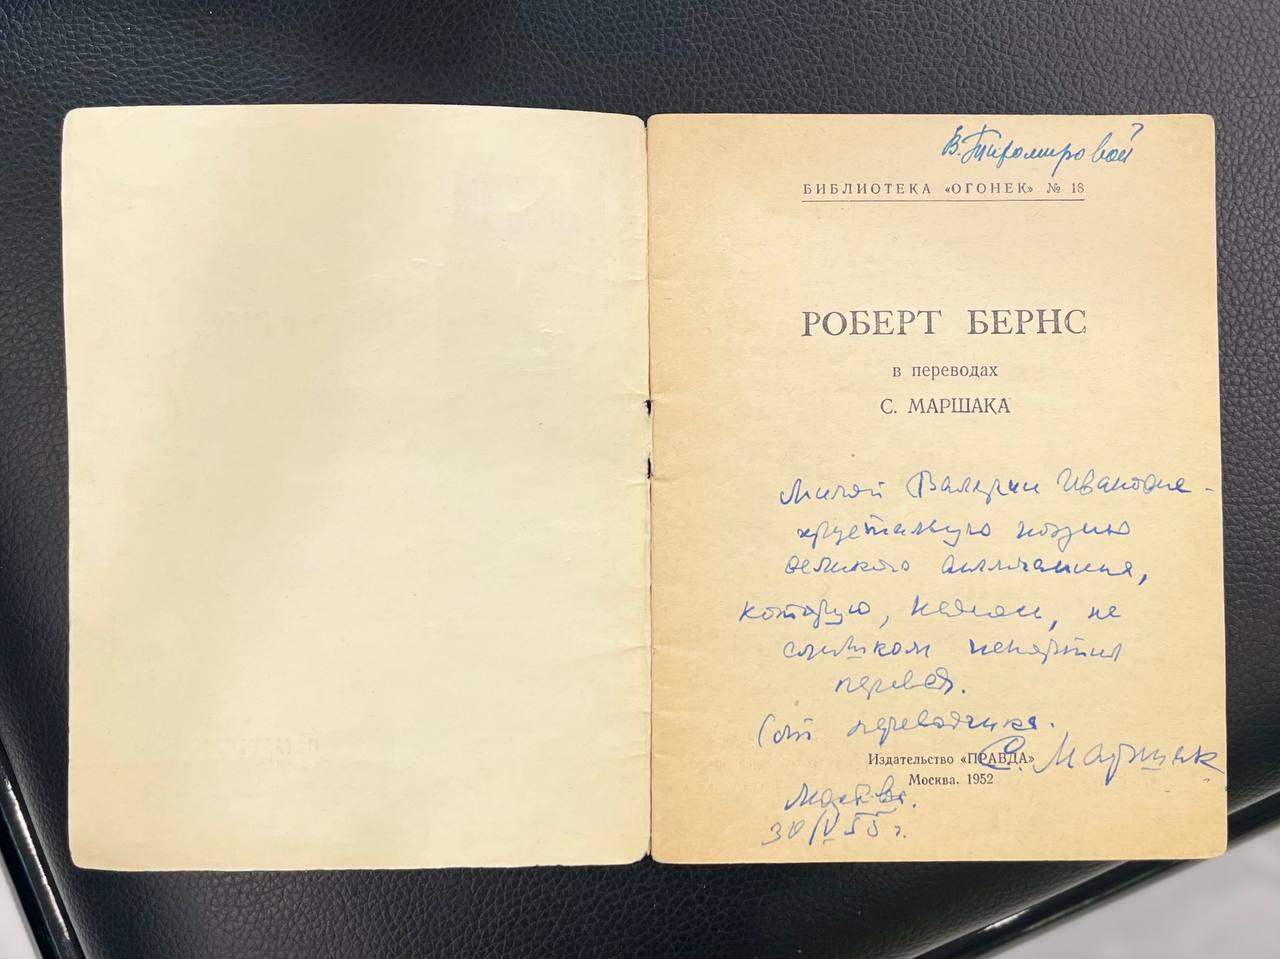 В. Тихомировой
БИБЛИОТЕКА «ОГОНЕК» № 18
РОБЕРТ БЕРНС
в переводах
С. МАРШАКА
Милой Валерии Ивановне -
хрустальную поэзию
великого англичанина,
которую, надеюсь, не
слишком испортил
перевод.
(От переводчика.
С. Маршак
Издательство «ПРАВДА»
Москва. 1952
Москва.
30/V 55 г.